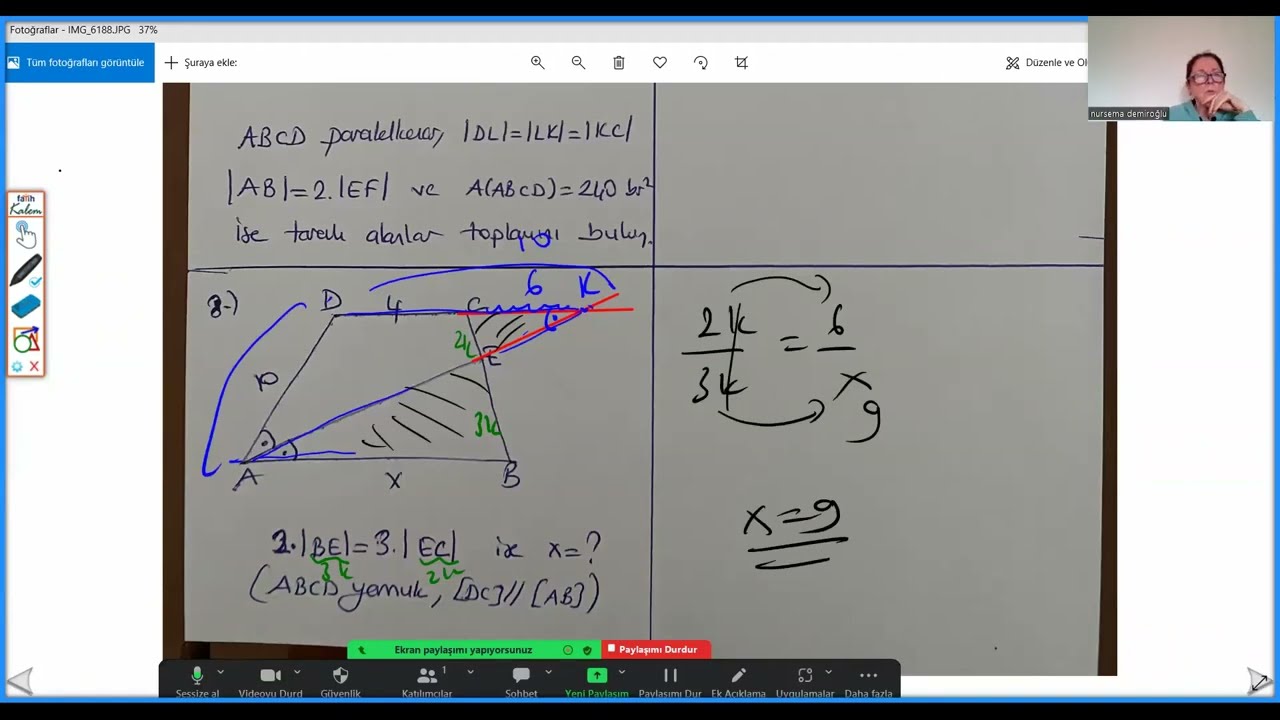 Fotoğraflar - IMG_6188.JPG 37%
Tüm fotoğrafları görüntüle
Şuraya ekle:
Düzenle ve Ol
nursema demiroğlu
fatih
Kalem
ABCD paralelkenar, |DL|=|LK|=|KC|
|AB|=2.|EF| ve A(ABCD)=240 br²
ise taralı alanlar toplamını bulun.
10
8-)
D 4 C 6 K
2k E
10
3k
A x B
2k/3k = 6/x
9
x=9
2.|BE|=3.|EC| ise x=?
3k 2k
(ABCD yamuk, [DC]//[AB])
Ekran paylaşımı yapıyorsunuz
Paylaşımı Durdur
1
Sessize al
Videoyu Durd
Güvenlik
Katılımcılar
Sohbet
Yeni Paylaşım
Paylaşımı Dur
Ek Açıklama
Uygulamalar
Daha fazla